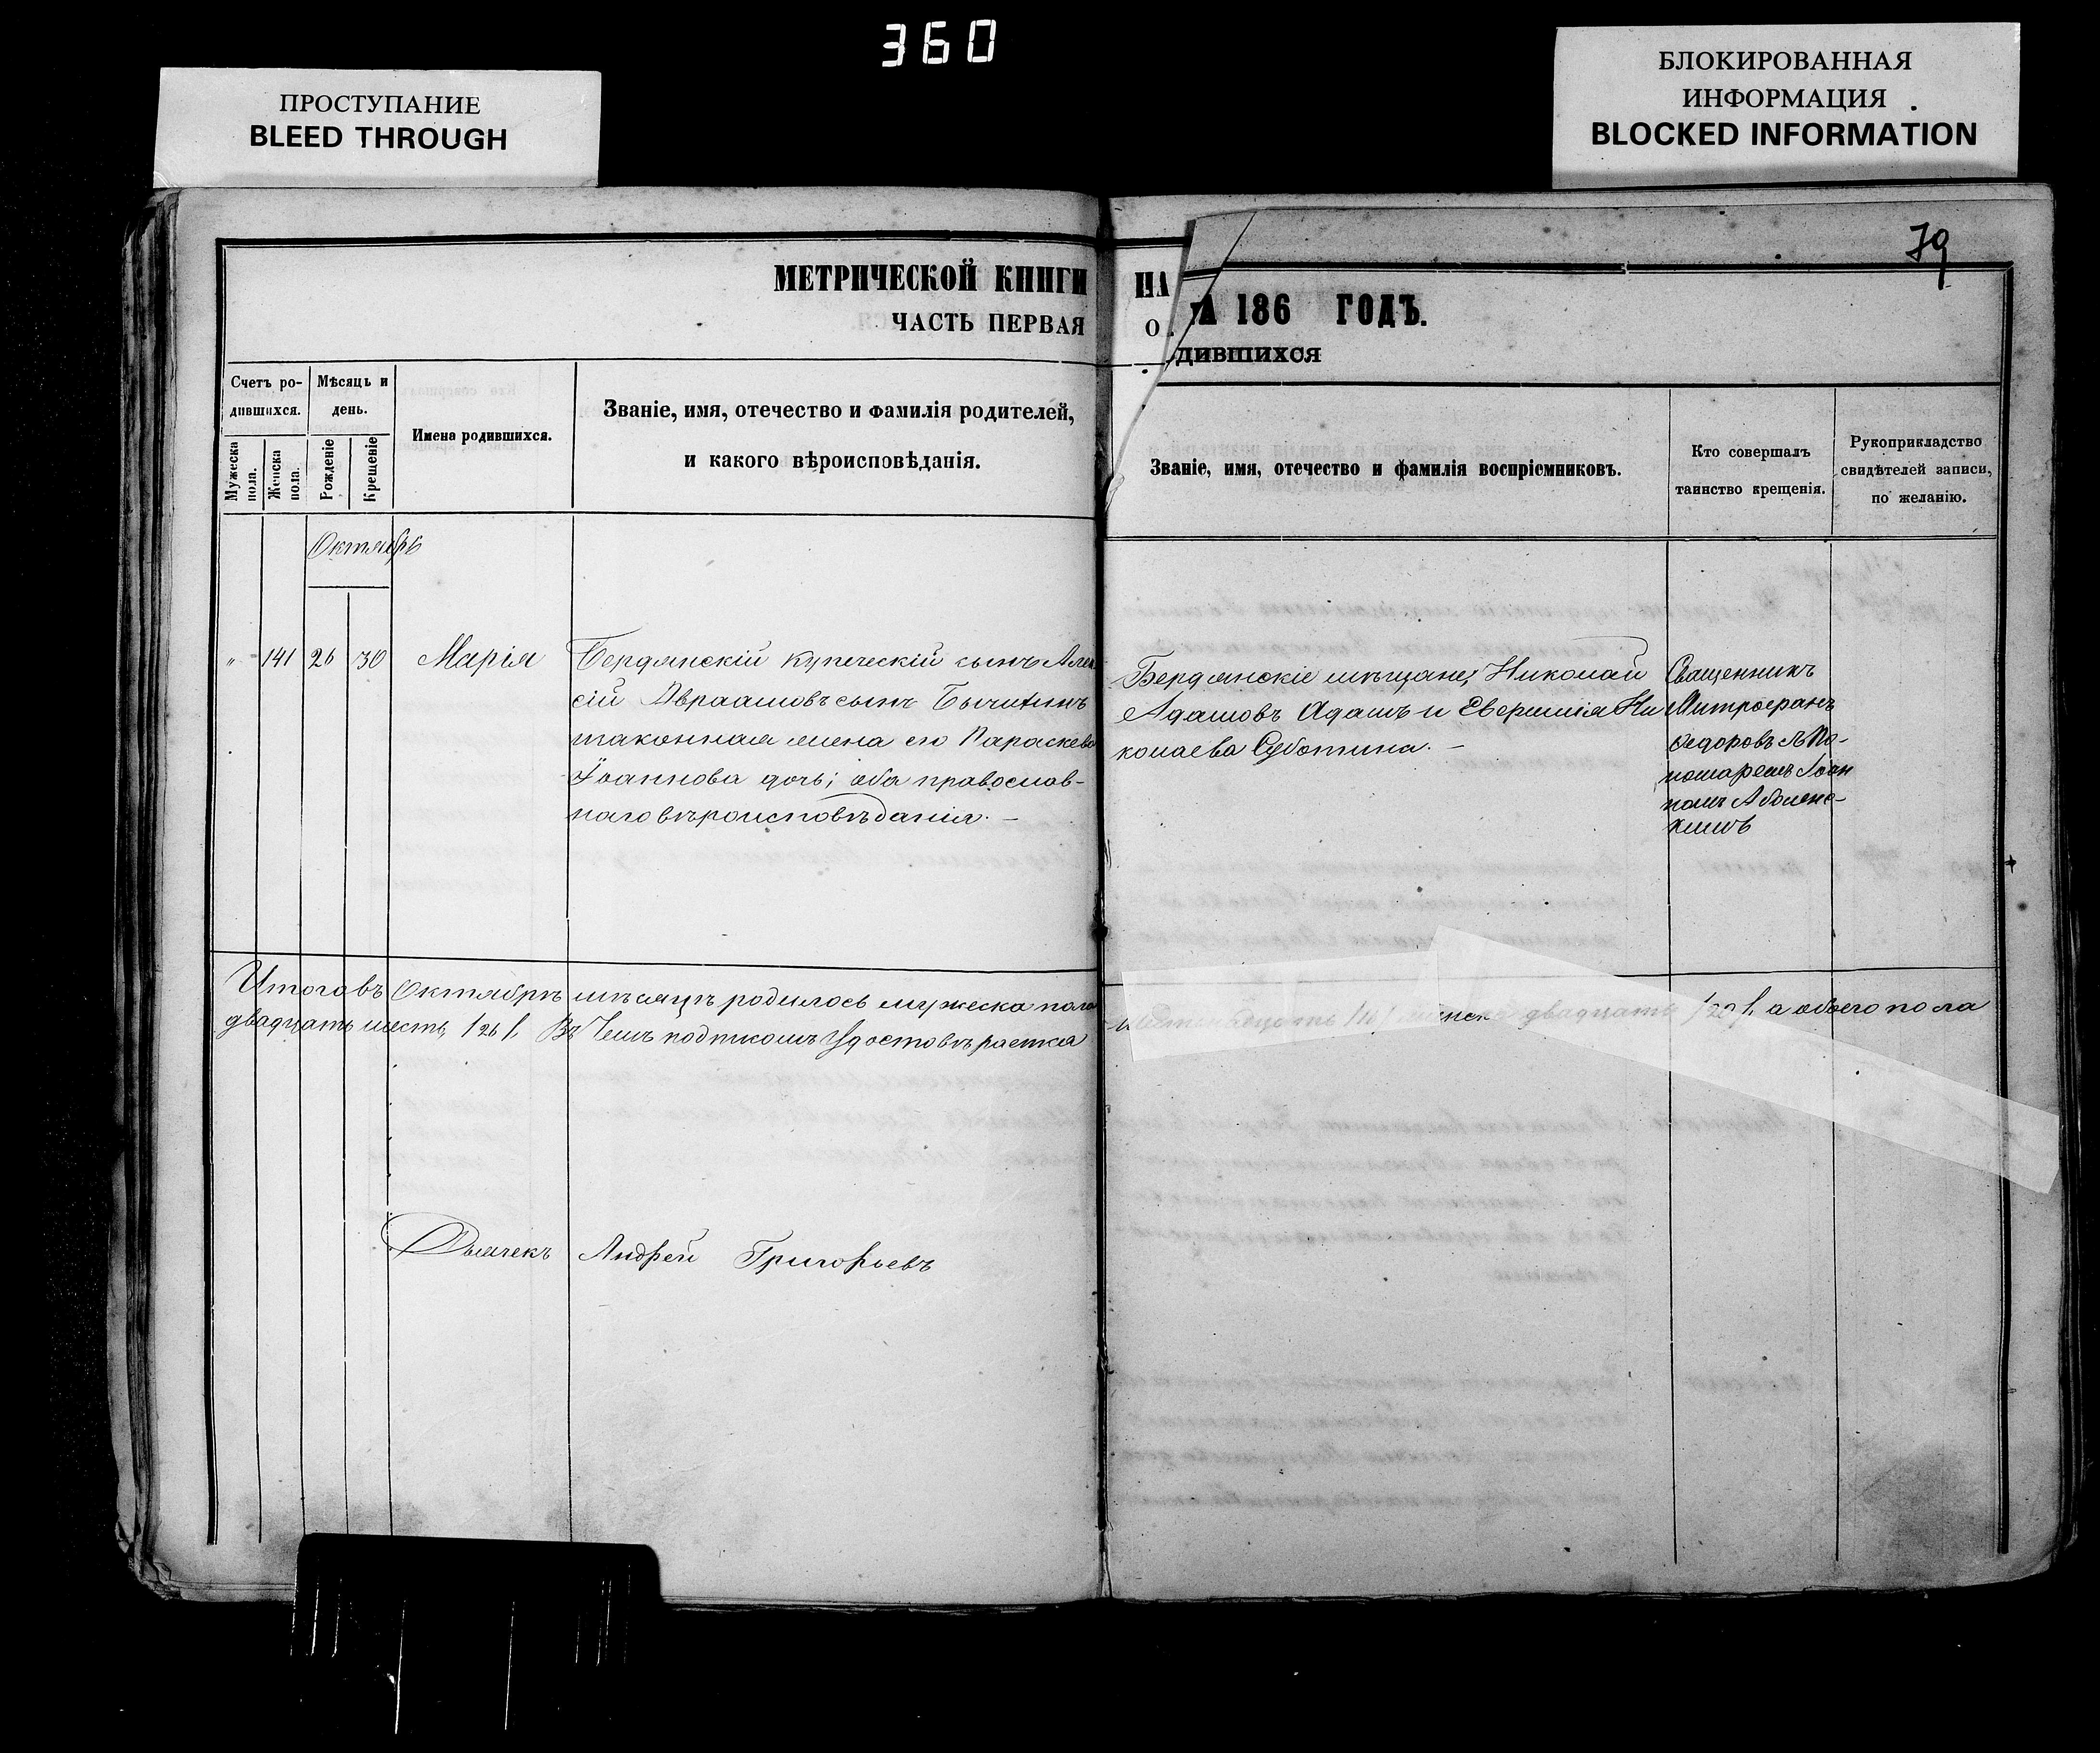 360
ПРОСТУПАНИЕ
BLEED THROUGH
БЛОКИРОВАННАЯ
ИНФОРМАЦИЯ
BLOCKED INFORMATION
79
МЕТРИЧЕСКОЙ КНИГИ НА
ЧАСТЬ ПЕРВАЯ О
А 186 ГОДЪ.
дившихся
Счетъ ро-
дившихся.
Мужеска пола.
Женска пола.
Мѣсяцъ и
день.
Рожденіе
Крещеніе
Имена родившихся.
Званіе, имя, отечество и фамилія родителей,
и какого вѣроисповѣданія.
Званіе, имя, отечество и фамилія воспріемниковъ.
Кто совершалъ
таинство крещенія.
Рукоприкладство
свидѣтелей записи,
по желанію.
Октябрь
" 141 26 30 Марія
Бердянскій купеческій сынъ Алек
сій Авраамовъ сынъ
законная жена его Параскева
Іоаннова дочь; оба православ-
наго вѣроисповѣданія. —
Бердянскіе мѣщане, Николай
Адамовъ Адамъ и Евфимія Ни
колаева Суботина. —
Священникъ
Митрофанъ
Федоровъ съ По-
номаремъ Іоан
номъ Аболенс-
кимъ
Итого въ Октябрѣ мѣсяцѣ родилось мужеска пола
шестнадцать /16/ женска двадцать /20/, а обоего пола
двадцать шесть /26/. Въ чемъ подписомъ удостовѣряется
Дьячекъ Андрей Григорьевъ